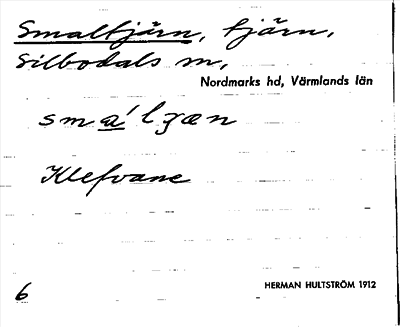 Smaltjärn, tjärn,
Silbodals m,
Nordmarks hd, Värmlands län
sma̲ʹlʒæn
Klefvane
6
HERMAN HULTSTRÖM 1912